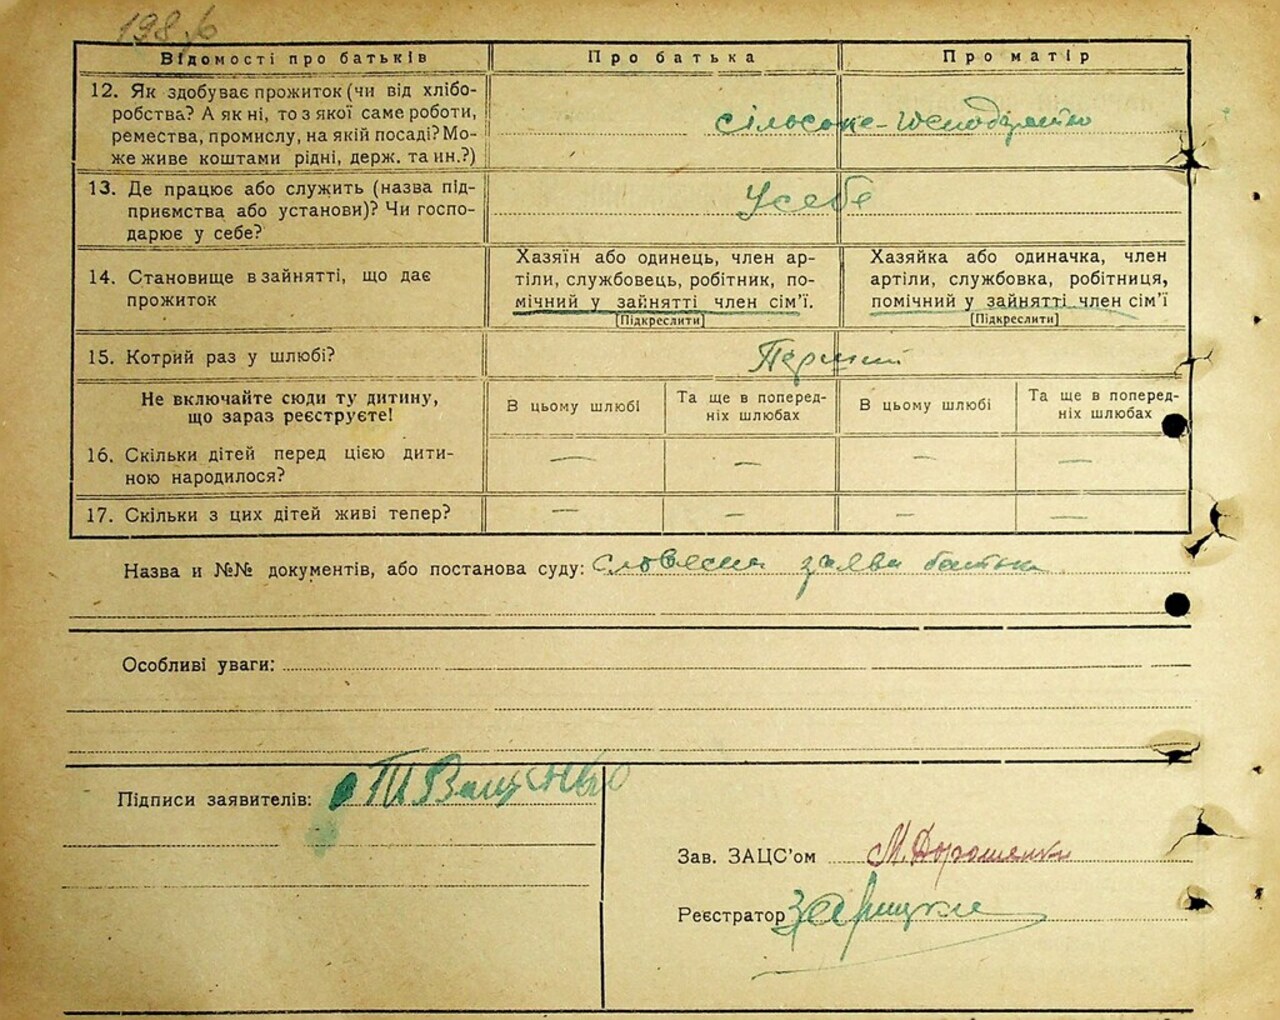 Відомості про батьків
Про батька
Про матір
12. Як здобуває прожиток (чи від хлібо-
робства? А як ні, то з якої саме роботи,
ремества, промислу, на якій посаді? Мо-
же живе коштами рідні, держ. та ин.?)
сільське-
13. Де працює або служить (назва під-
приємства або установи)? Чи госпо-
дарює у себе?
Усебе
14. Становище в зайнятті, що дає
прожиток
Хазяїн або одинець, член ар-
тіли, службовець, робітник, по-
мічний у зайнятті член сім'ї.
[Підкреслити]
Хазяйка або одиначка, член
артіли, службовка, робітниця,
помічний у зайнятті член сім'ї
[Підкреслити]
15. Котрий раз у шлюбі?
Не включайте сюди ту дитину,
що зараз реєструєте!
В цьому шлюбі
Та ще в поперед-
ніх шлюбах
В цьому шлюбі
Та ще в поперед-
ніх шлюбах
16. Скільки дітей перед цією дити-
ною народилося?
— — — —
17. Скільки з цих дітей живі тепер?
— — — —
Назва и №№ документів, або постанова суду: словесна заява батька
Особливі уваги:
Підписи заявителів: Ващенко
Зав. ЗАЦС'ом М. Дорошенко
Реєстратор